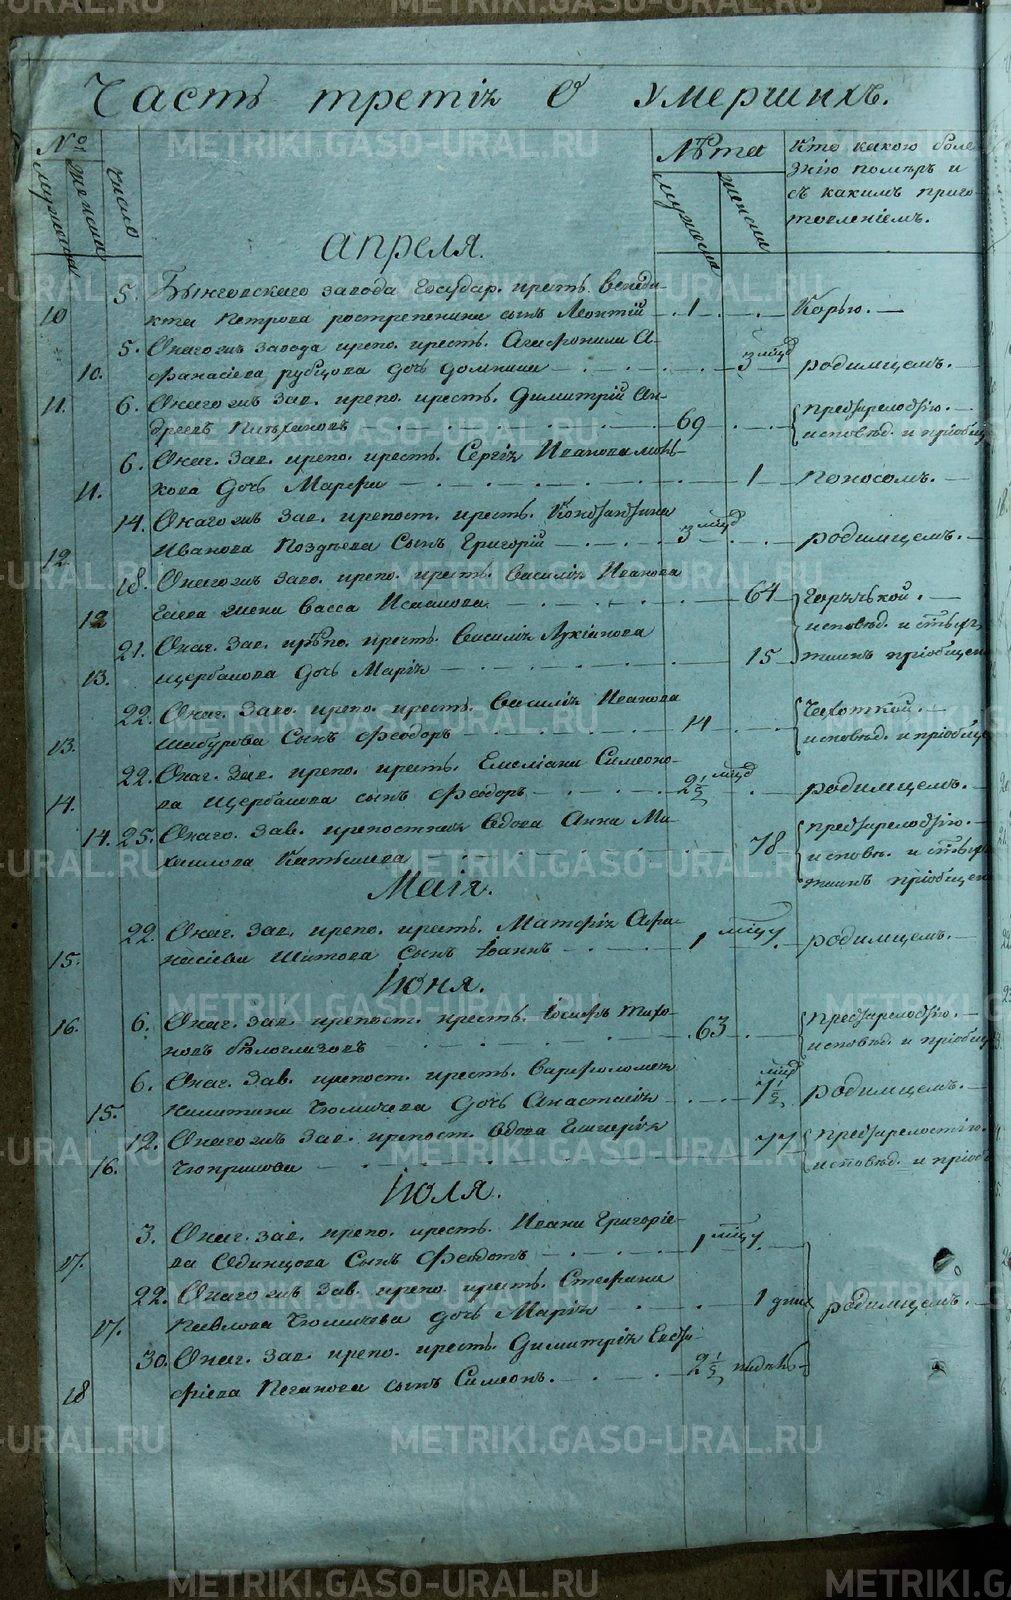 Часть третія О умершихъ.
№
мужеска
женска
число
Лѣта
мужеска
женска
Кто какою боле-
знію помѣръ и
съ какимъ приго-
товленіемъ.
Апреля.
10
5.
Бынговскаго завода государ. крест. Венеди-
кта Петрова сынъ Леонтій
1
Корью.
10.
5.
Онагожъ завода крепо. крест. Агафона А-
фанасіева рубцова дочь домника
3 мцд
родимцемъ.
11.
6.
Онагожъ зав. крепо. крест. Димитрій Ан-
дреевъ
69
престарелостію.
исповѣд. и пріобщ
11.
6.
Онаг. Зав. крепо. крест. Сергія Иванова
дочь Марфа
1
Поносомъ.
12
14.
Онагожъ Зав. крепост. крест. Константина
Иванова Поздѣева Сынъ Григорій
3 мцд
родимцемъ.
12
18.
Онагожъ Заво. крепо. крест. Василія Иванова
жена Васса Исакова
64
Горячкой.
исповѣд. и
пріобщен
13.
21.
Онаг. Зав. крѣпо. крест. Василія Лукіанова
щербакова дочь Марія
15
13.
22.
Онаг. Заво. крепо. крест. Василія Иванова
шабурова Сынъ Феодоръ
14
Чахоткой.
исповѣд. и пріобщ
14.
22.
Онаг. Зав. крепо. крест. Емеліана Симеоно-
ва щербакова сынъ Феодоръ
2 1/2 мцд
родимцемъ.
14.
25.
Онаго. Зав. крепостная вдова Анна Ми-
хаилова
78
престарелостію.
исповѣ. и
пріобщен
Маія.
15.
22.
Онаг. Зав. крепо. крест. Матфія Афа-
насіева Шитова сынъ Іоаннъ
1 мцу
родимцемъ.
Іюня.
16.
6.
Онаг. Зав. крепост. крест. Іосифъ Тихо-
новъ бѣлоглазовъ
63
Престарелостію.
исповѣд. и пріобщ
15.
6.
Онаг. Зав. крепост. крест. Варфоломея
Никитина Чюмичева дочь Анастасія
1 1/2 мцд
родимцемъ.
16.
12.
Онагожъ Зав. крепост. вдова Гликерія
Чюпракова
77
Престарелостію.
исповѣд. и пріоб
Іюля.
17.
3.
Онаг. зав. крепо. крест. Ивана Григоріе-
ва Одинцова Сынъ Феодотъ
1 мцу
17.
22.
Онагожъ Зав. крепо. крест. Стефана
Павлова Чюмичева дочь Марія
1 дния
родимцемъ.
18
30.
Онаг. Зав. крепо. крест. Димитрія Евста-
фіева Поганова сынъ Симеонъ.
2 1/2 недѣль
METRIKI.GASO-URAL.RU